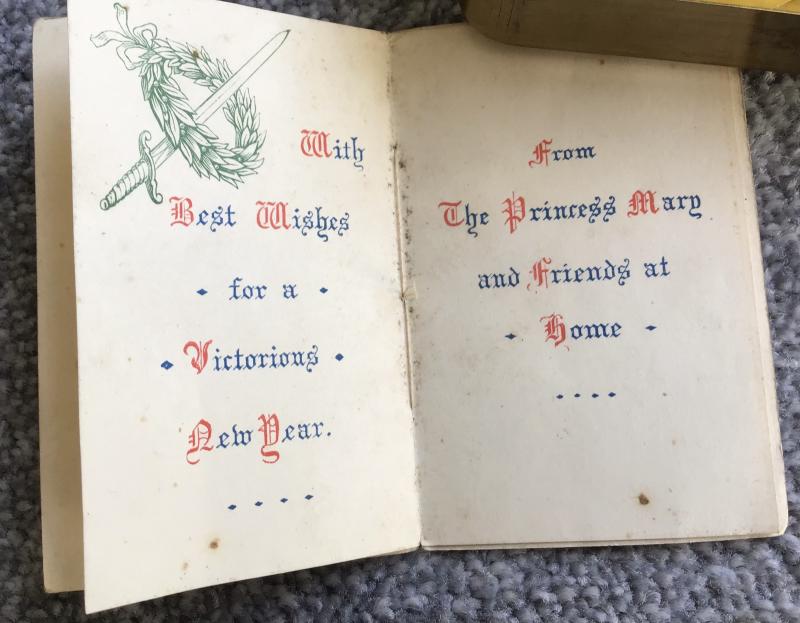 With
Best Wishes
· for a ·
· Victorious ·
New Year.
. . . .
From
The Princess Mary
and Friends at
· Home ·
. . . .